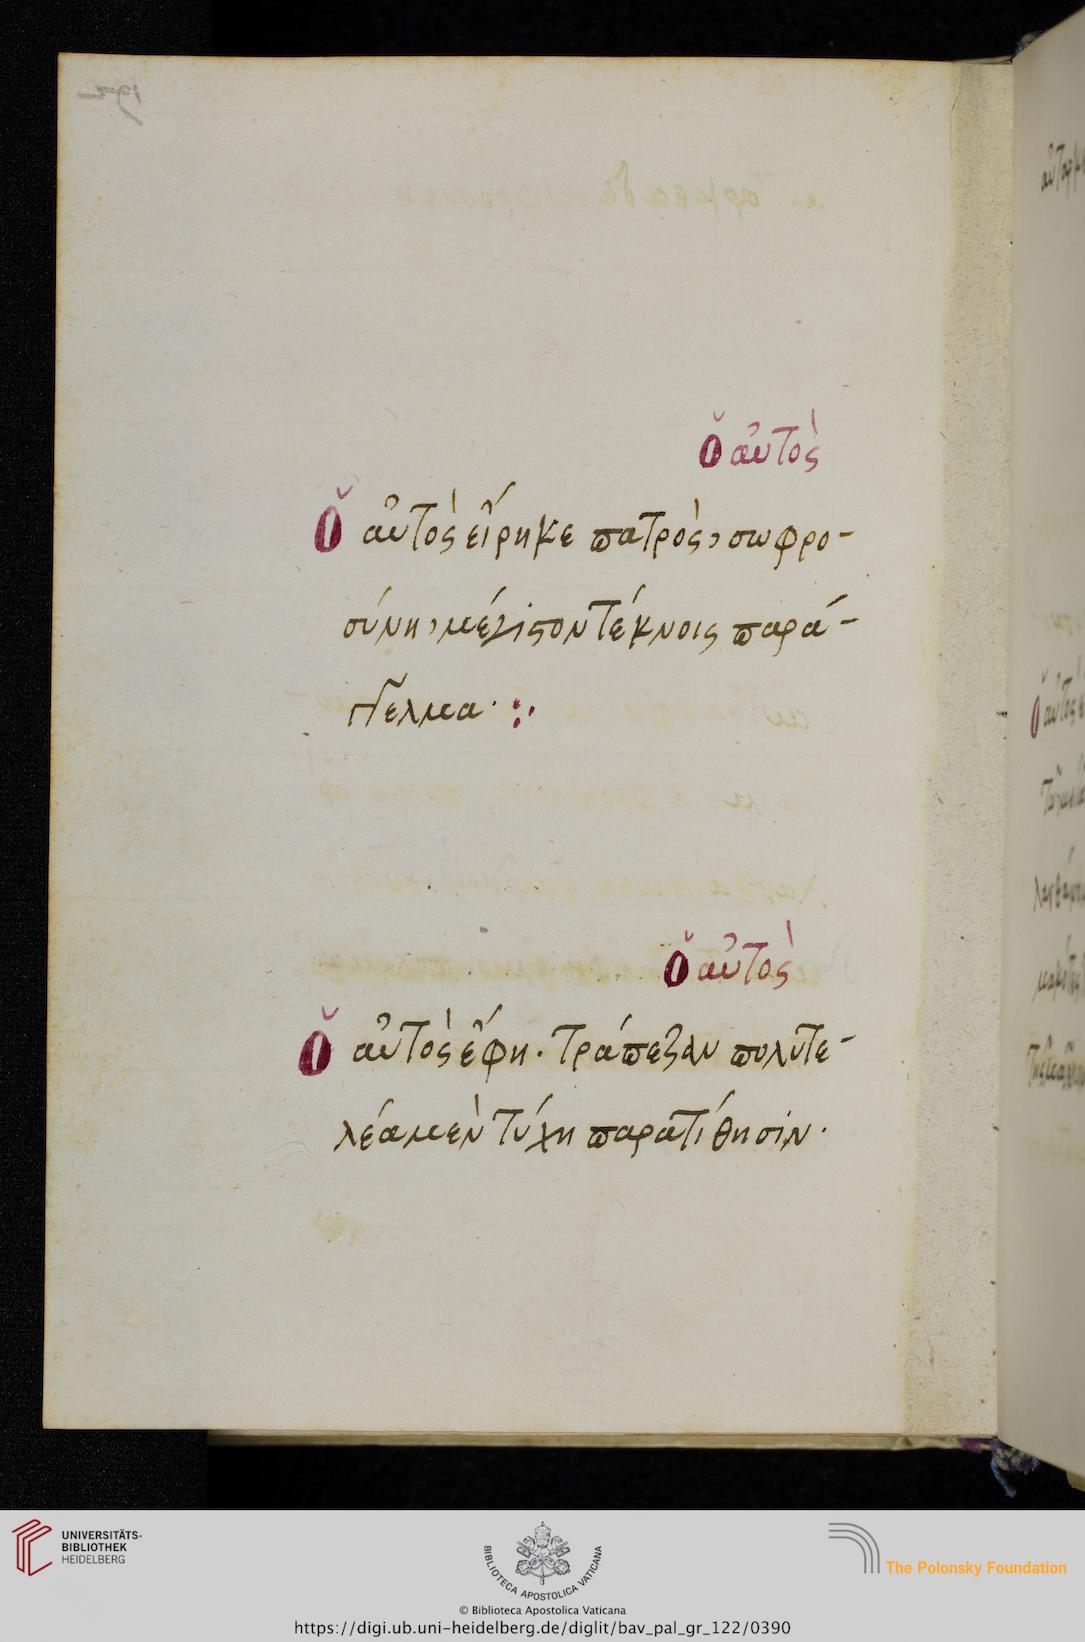 Ὁ αὐτὸς
Ὁ αὐτὸς εἴρηκε πατρὸς, σωφρο-
σύνη, μέγιστον τέκνοις παρά-
γγελμα
Ὁ αὐτὸς
Ὁ αὐτὸς ἔφη. τράπεζαν πολυτε-
λέα μὲν τύχη παρατίθησιν.
UNIVERSITÄTS-
BIBLIOTHEK
HEIDELBERG
BIBLIOTECA APOSTOLICA VATICANA
© Biblioteca Apostolica Vaticana
The Polonsky Foundation
https://digi.ub.uni-heidelberg.de/diglit/bav_pal_gr_122/0390